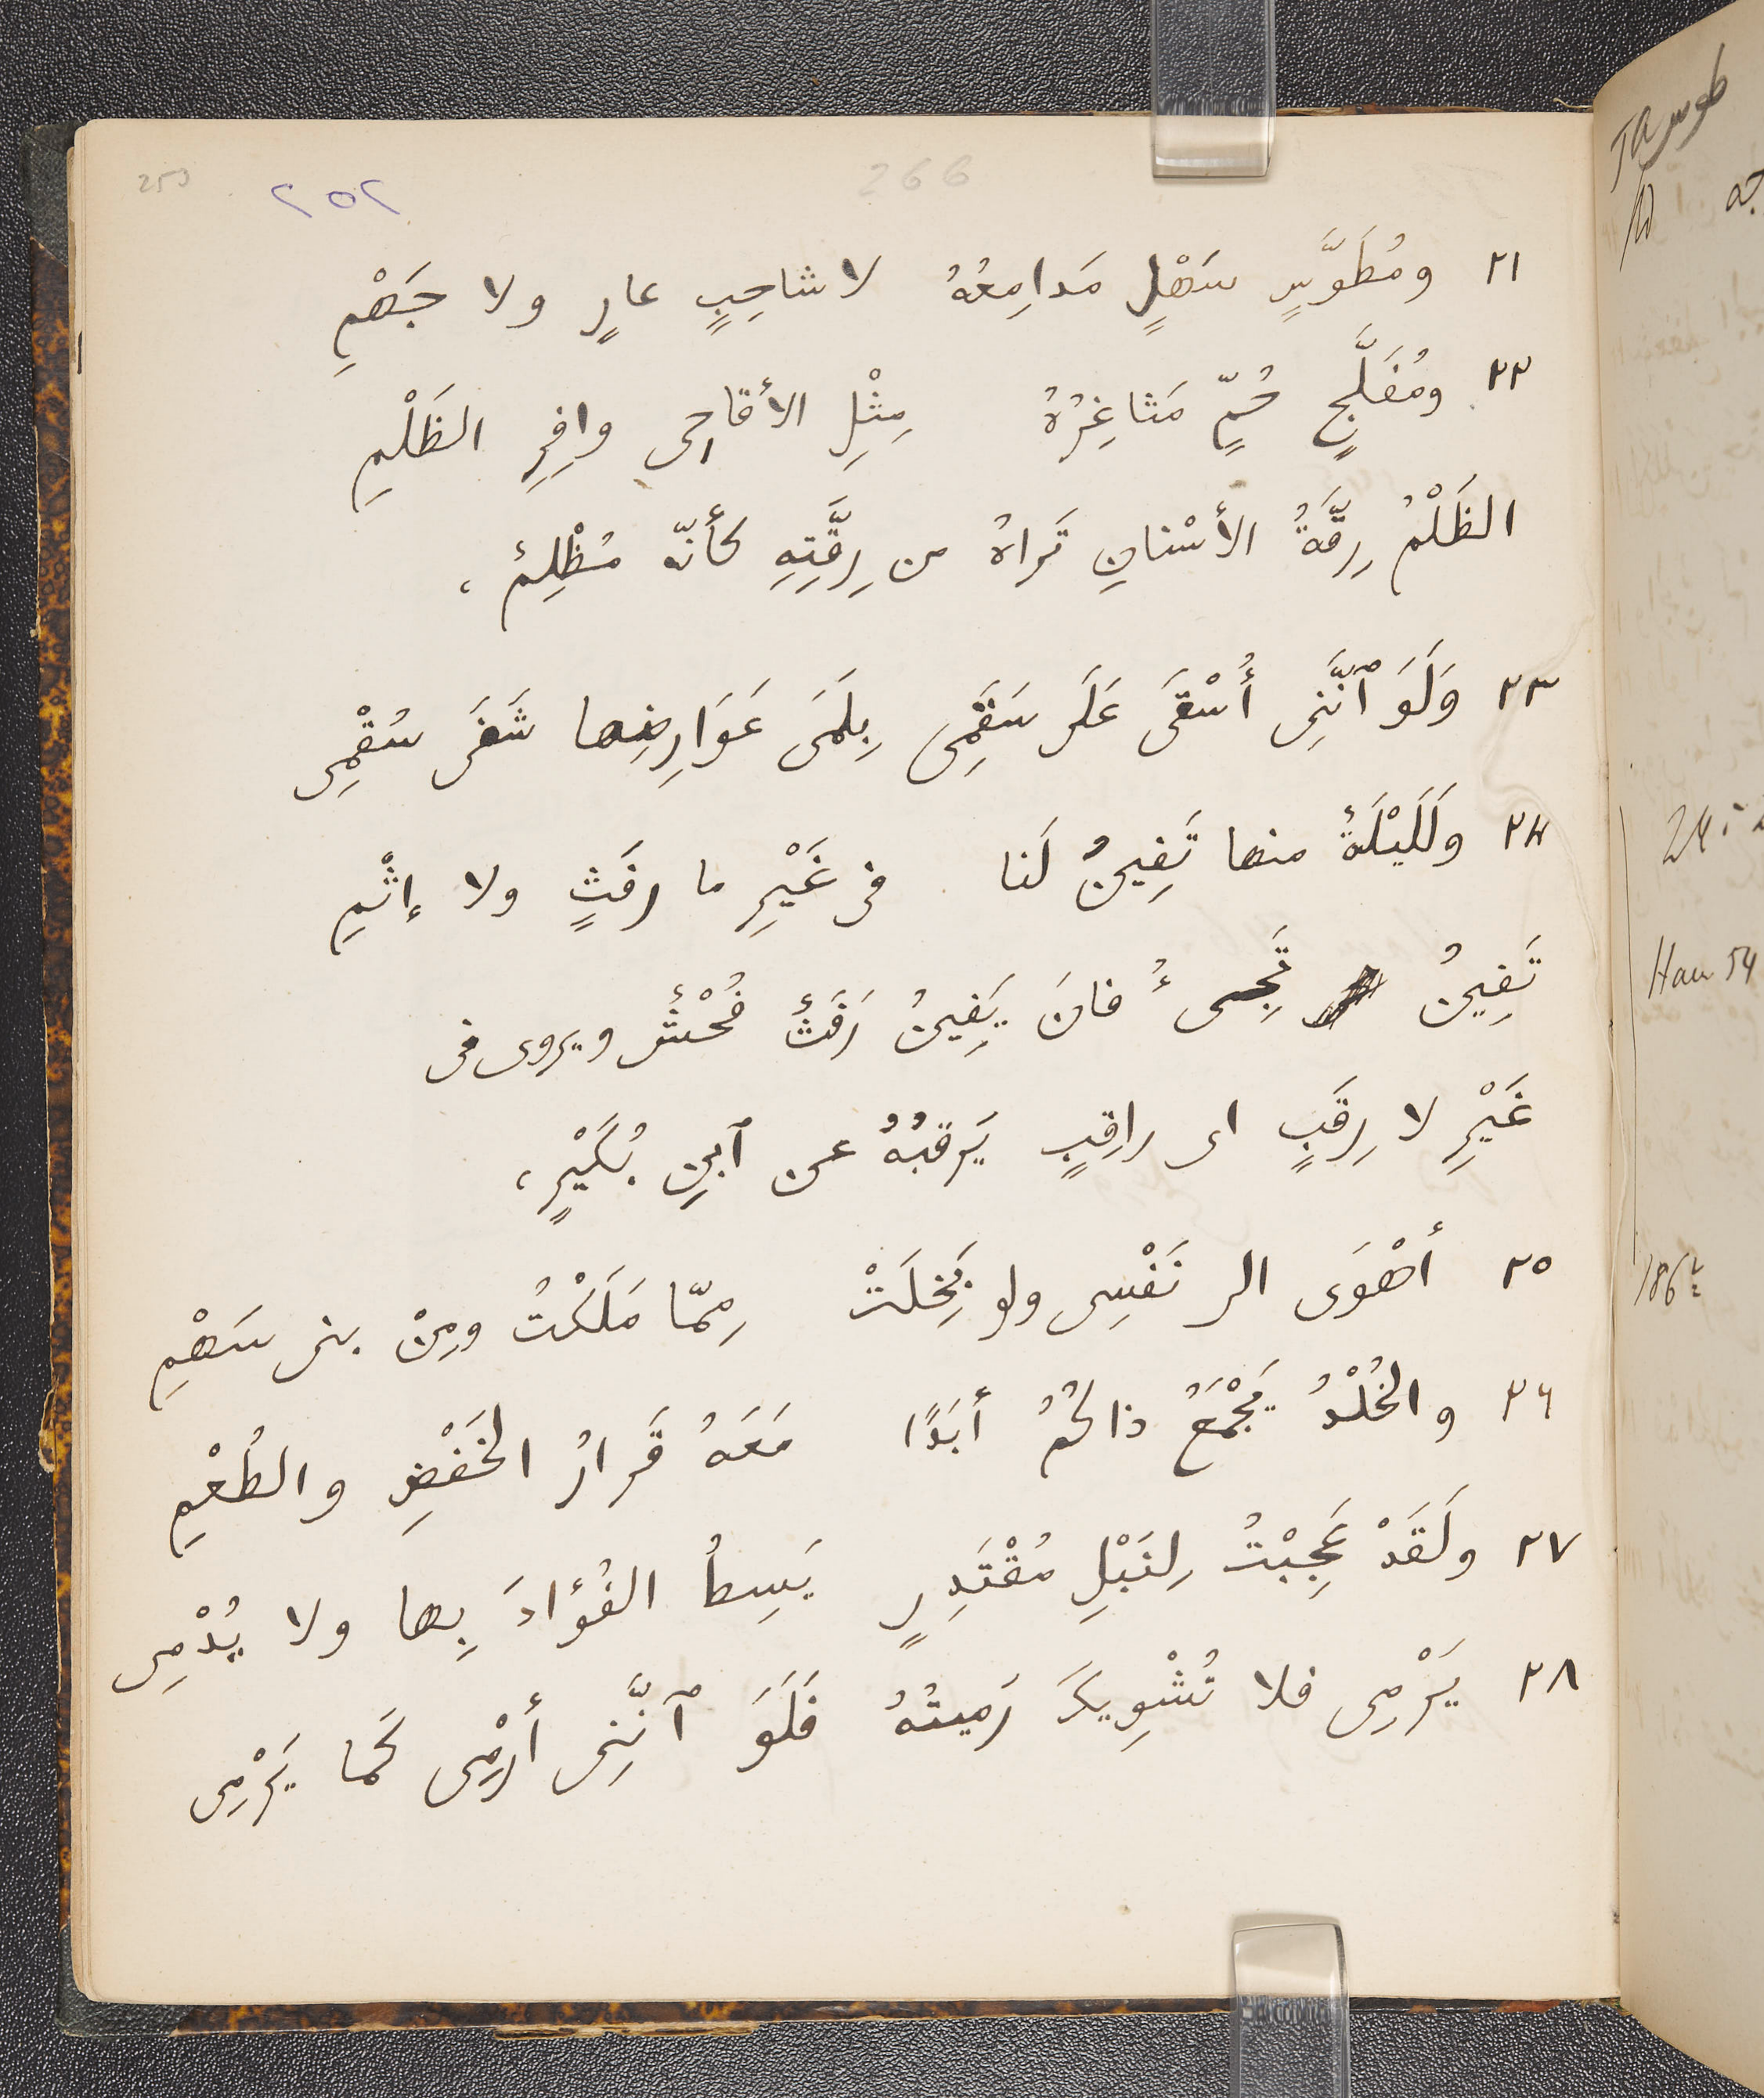 253
٢٥٢
266
٢١ ومُطَوَّسٍ سَهْلٍ مَدامِعُهُ لا شاحِبٍ عارٍ ولا جَهْمِ
٢٢ ومُفَلَّجٍ حُمٍّ مَثاغِرُهُ مِثْلِ الأقاحِى وافِرِ الظَلْمِ
الظَلْمُ رِقّةُ الأسْنانِ تَراهُ من رِقَّتِهِ كأنّه مُظْلِمٌ ،
٢٣ وَلَوَ ٱنَّنِى أُسْقَى عَلَى سَقَمِى بِلَمَى عَوَارِضِها شَفَى سُقْمِى
٢٤ ولَلَيْلَةٌ منها تَفِينُ لَنا فى غَيْرِ ما رفَثٍ ولا إثْمِ
تَفِينُ تَجِىءُ فانَ يَفِينُ رَفَثٌ فُحْشٌ ويروى فى
غَيْرِ لا رِقَبٍ اى راقِبٍ يَرقبُهُ عن ٱبنِ بُكَيْرٍ ،
٢٥ أهْوَى الى نَفْسِى ولو بَخِلَتْ مِمّا مَلَكْتُ ومِنْ بنى سَهْمِ
٢٦ والخُلْدُ يَجْمَعُ ذاكُمُ أبَدًا مَعَهُ قَرارُ الخَفْضِ والطُعْمِ
٢٧ ولَقَدْ عَجِبْتُ لِنَبْلِ مُقْتَدِرٍ يَسِطُ الفُؤادَ بِها ولا يُدْمِى
٢٨ يَرْمِى فلا تُشْوِيكَ رَميتُهُ فَلَوَ ٱنَّنِى أرْمِى كَما يَرْمِى
طوس
Ham 54